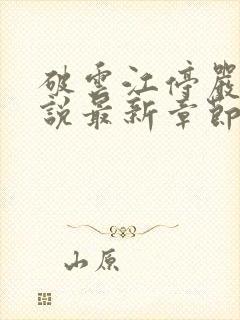 破雲江停嚴
說最新章節
山原